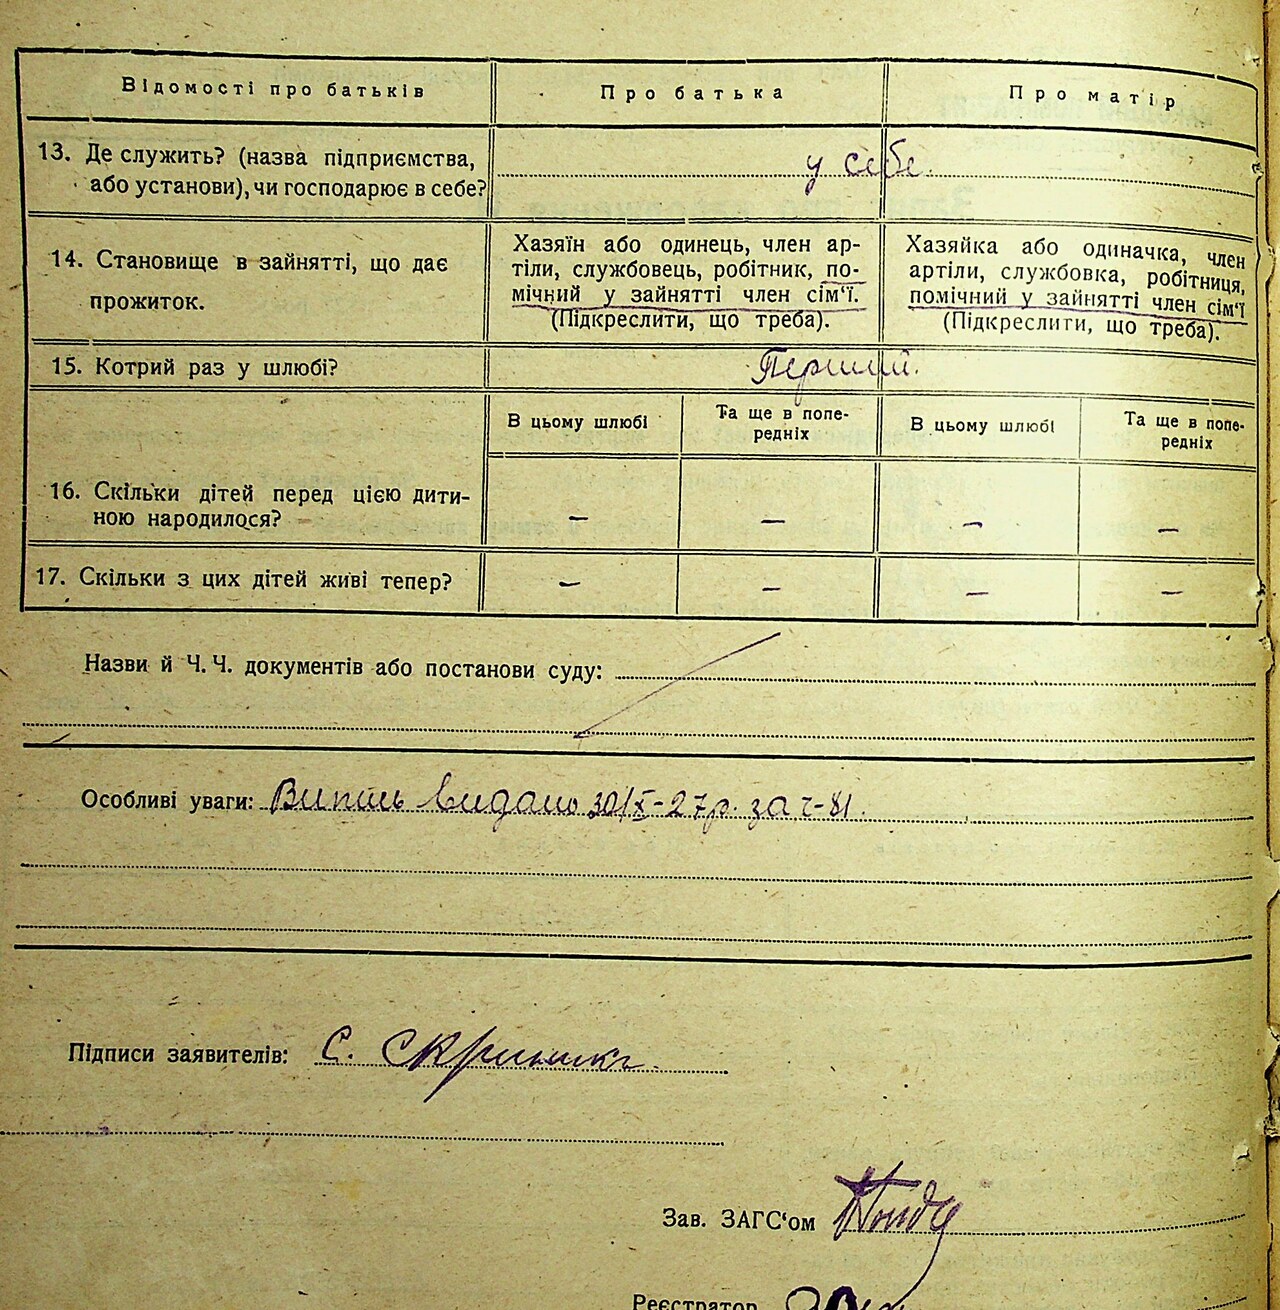 Відомості про батьків Про батька Про матір
13. Де служить? (назва підприємства,
або установи), чи господарює в себе?
у себе.
14. Становище в зайнятті, що дає
прожиток.
Хазяїн або одинець, член ар-
тіли, службовець, робітник, по-
мічний у зайнятті член сім‘ї.
(Підкреслити, що треба).
Хазяйка або одиначка, член
артіли, службовка, робітниця,
помічний у зайнятті член сім‘ї
(Підкреслити, що треба).
15. Котрий раз у шлюбі? Перший.
В цьому шлюбі
Та ще в попе-
редніх
В цьому шлюбі
Та ще в попе-
редніх
16. Скільки дітей перед цією дити-
ною народилося? – – – –
17. Скільки з цих дітей живі тепер? – – – –
Назви й Ч. Ч. документів або постанови суду:
Особливі уваги: Випись видано 30/X-27р. за ч-81.
Підписи заявителів: С. Скрипник
Зав. ЗАГС‘ом
Реєстратор